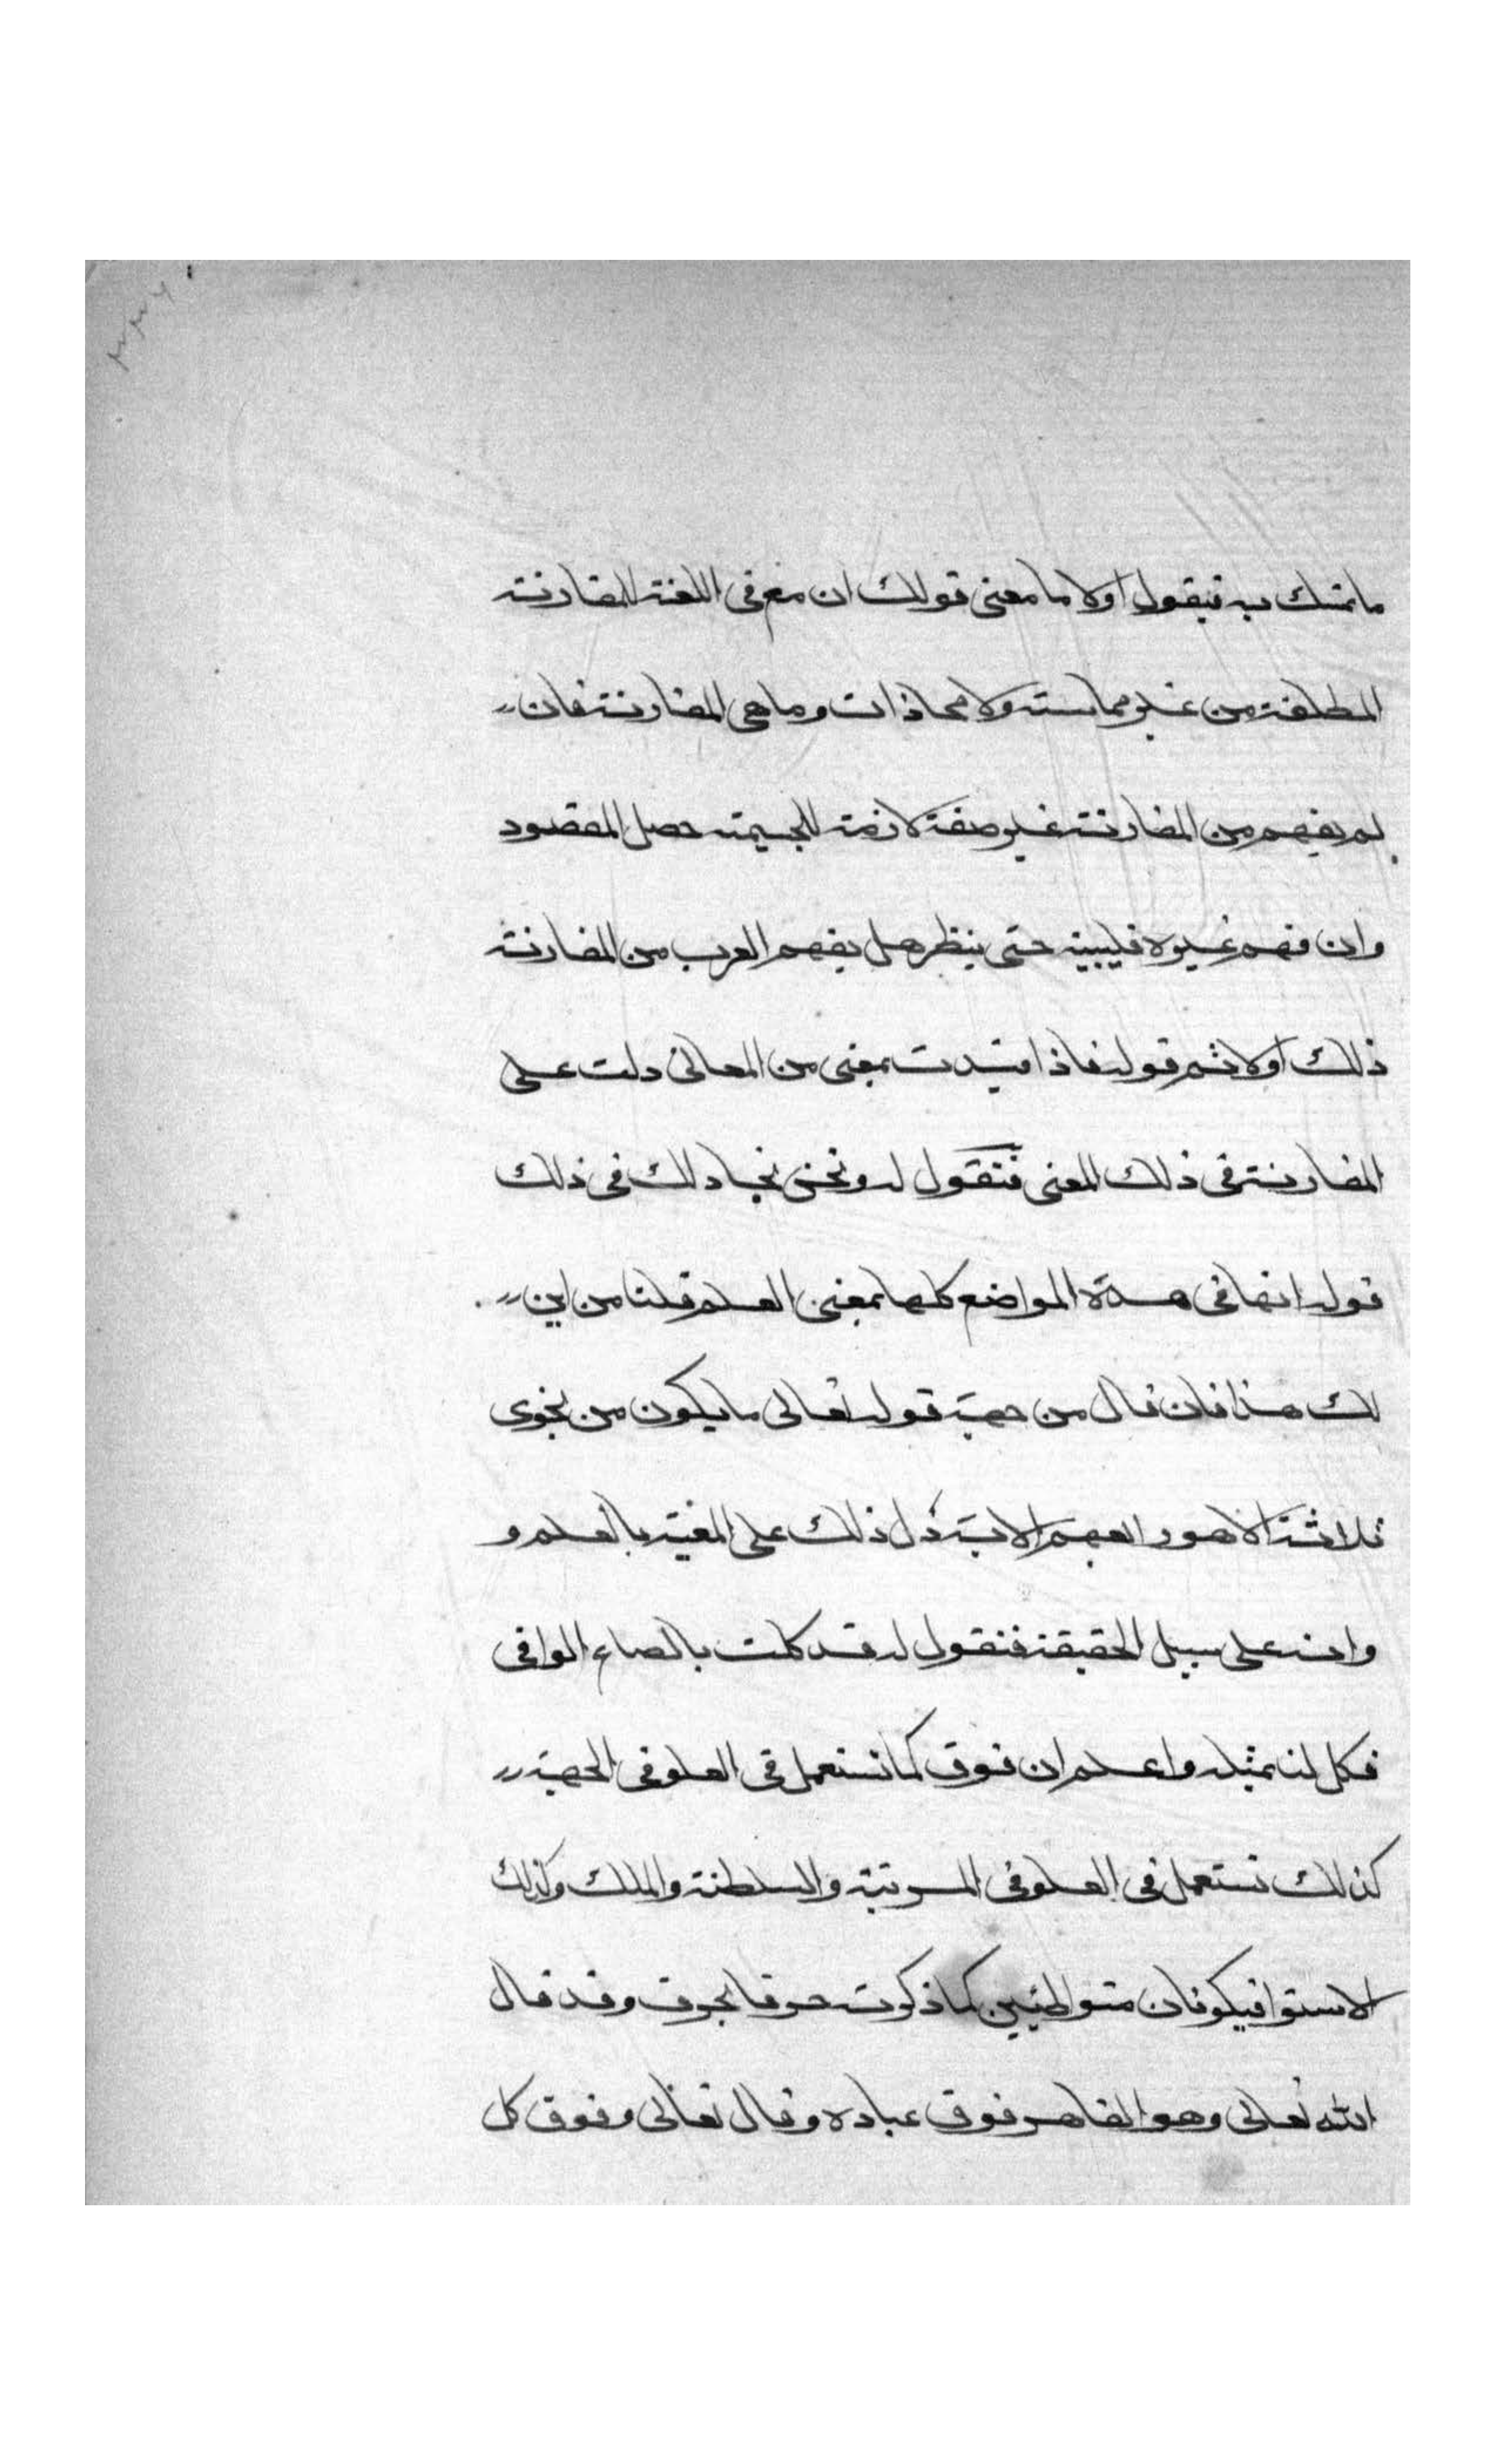 ماتمسك به فيقول اولا ما معنى قولك ان مع فى اللغة المقارنة
المطلقة من غير مماسته ولا محاذات وما هى المقارنة فان
لم يفهم من المقارنة غير صفة لازمة للجسيمة حصل المقصود
وان فهم غيره فليبينه حتى ينظر هل يفهم العرب من المقارنة
ذلك اولا ثم قوله فاذا قيدت بمعنى من المعانى دلت على
المقارنة فى ذلك المعنى فنقول له ونحن نجادلك فى ذلك
قوله انها فى هذه المواضع كلها بمعنى العلم قلنا من اين
لك هذا فان قال من جهة قوله تعالى ما يكون من نجوى
ثلاثة الا هو رابعهم الاية دل ذلك على المعية بالعلم و
وانه على سبيل الحقيقة فنقول له قد كلت بالصاع الوافى
فكل لنا بمثله واعلم ان فوق كما تستعمل فى العلو فى الجهة
كذلك تستعمل فى العلو فى المرتبة والسلطنة والملك وكذلك
الاستوا فيكونان متواطئين كما ذكرت حرفا بحرف وقد قال
الله تعالى وهو القاهر فوق عباده وقال تعالى وفوق كل